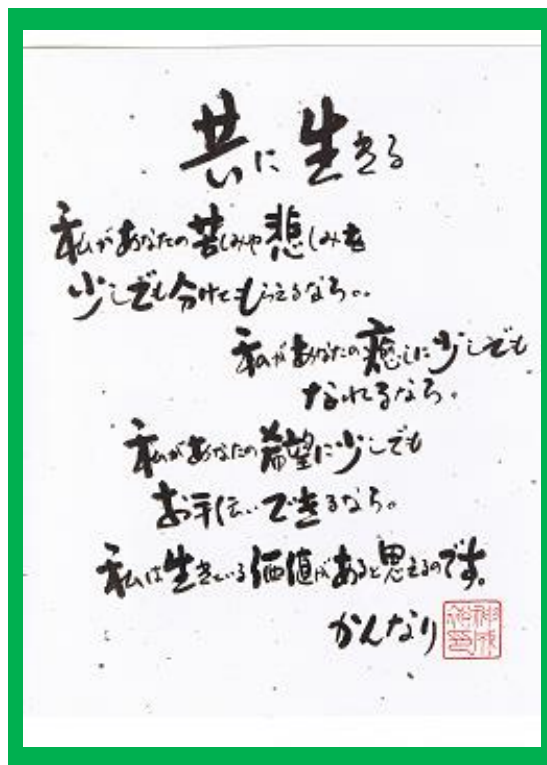 共に生きる
私があなたの苦しみや悲しみを
少しでも分けてもらえるなら。。
私があなたの癒しに少しでも
なれるなら。
私があなたの希望に少しでも
お手伝いできるなら。
私は生きている価値があると思えるのです。
かんなり